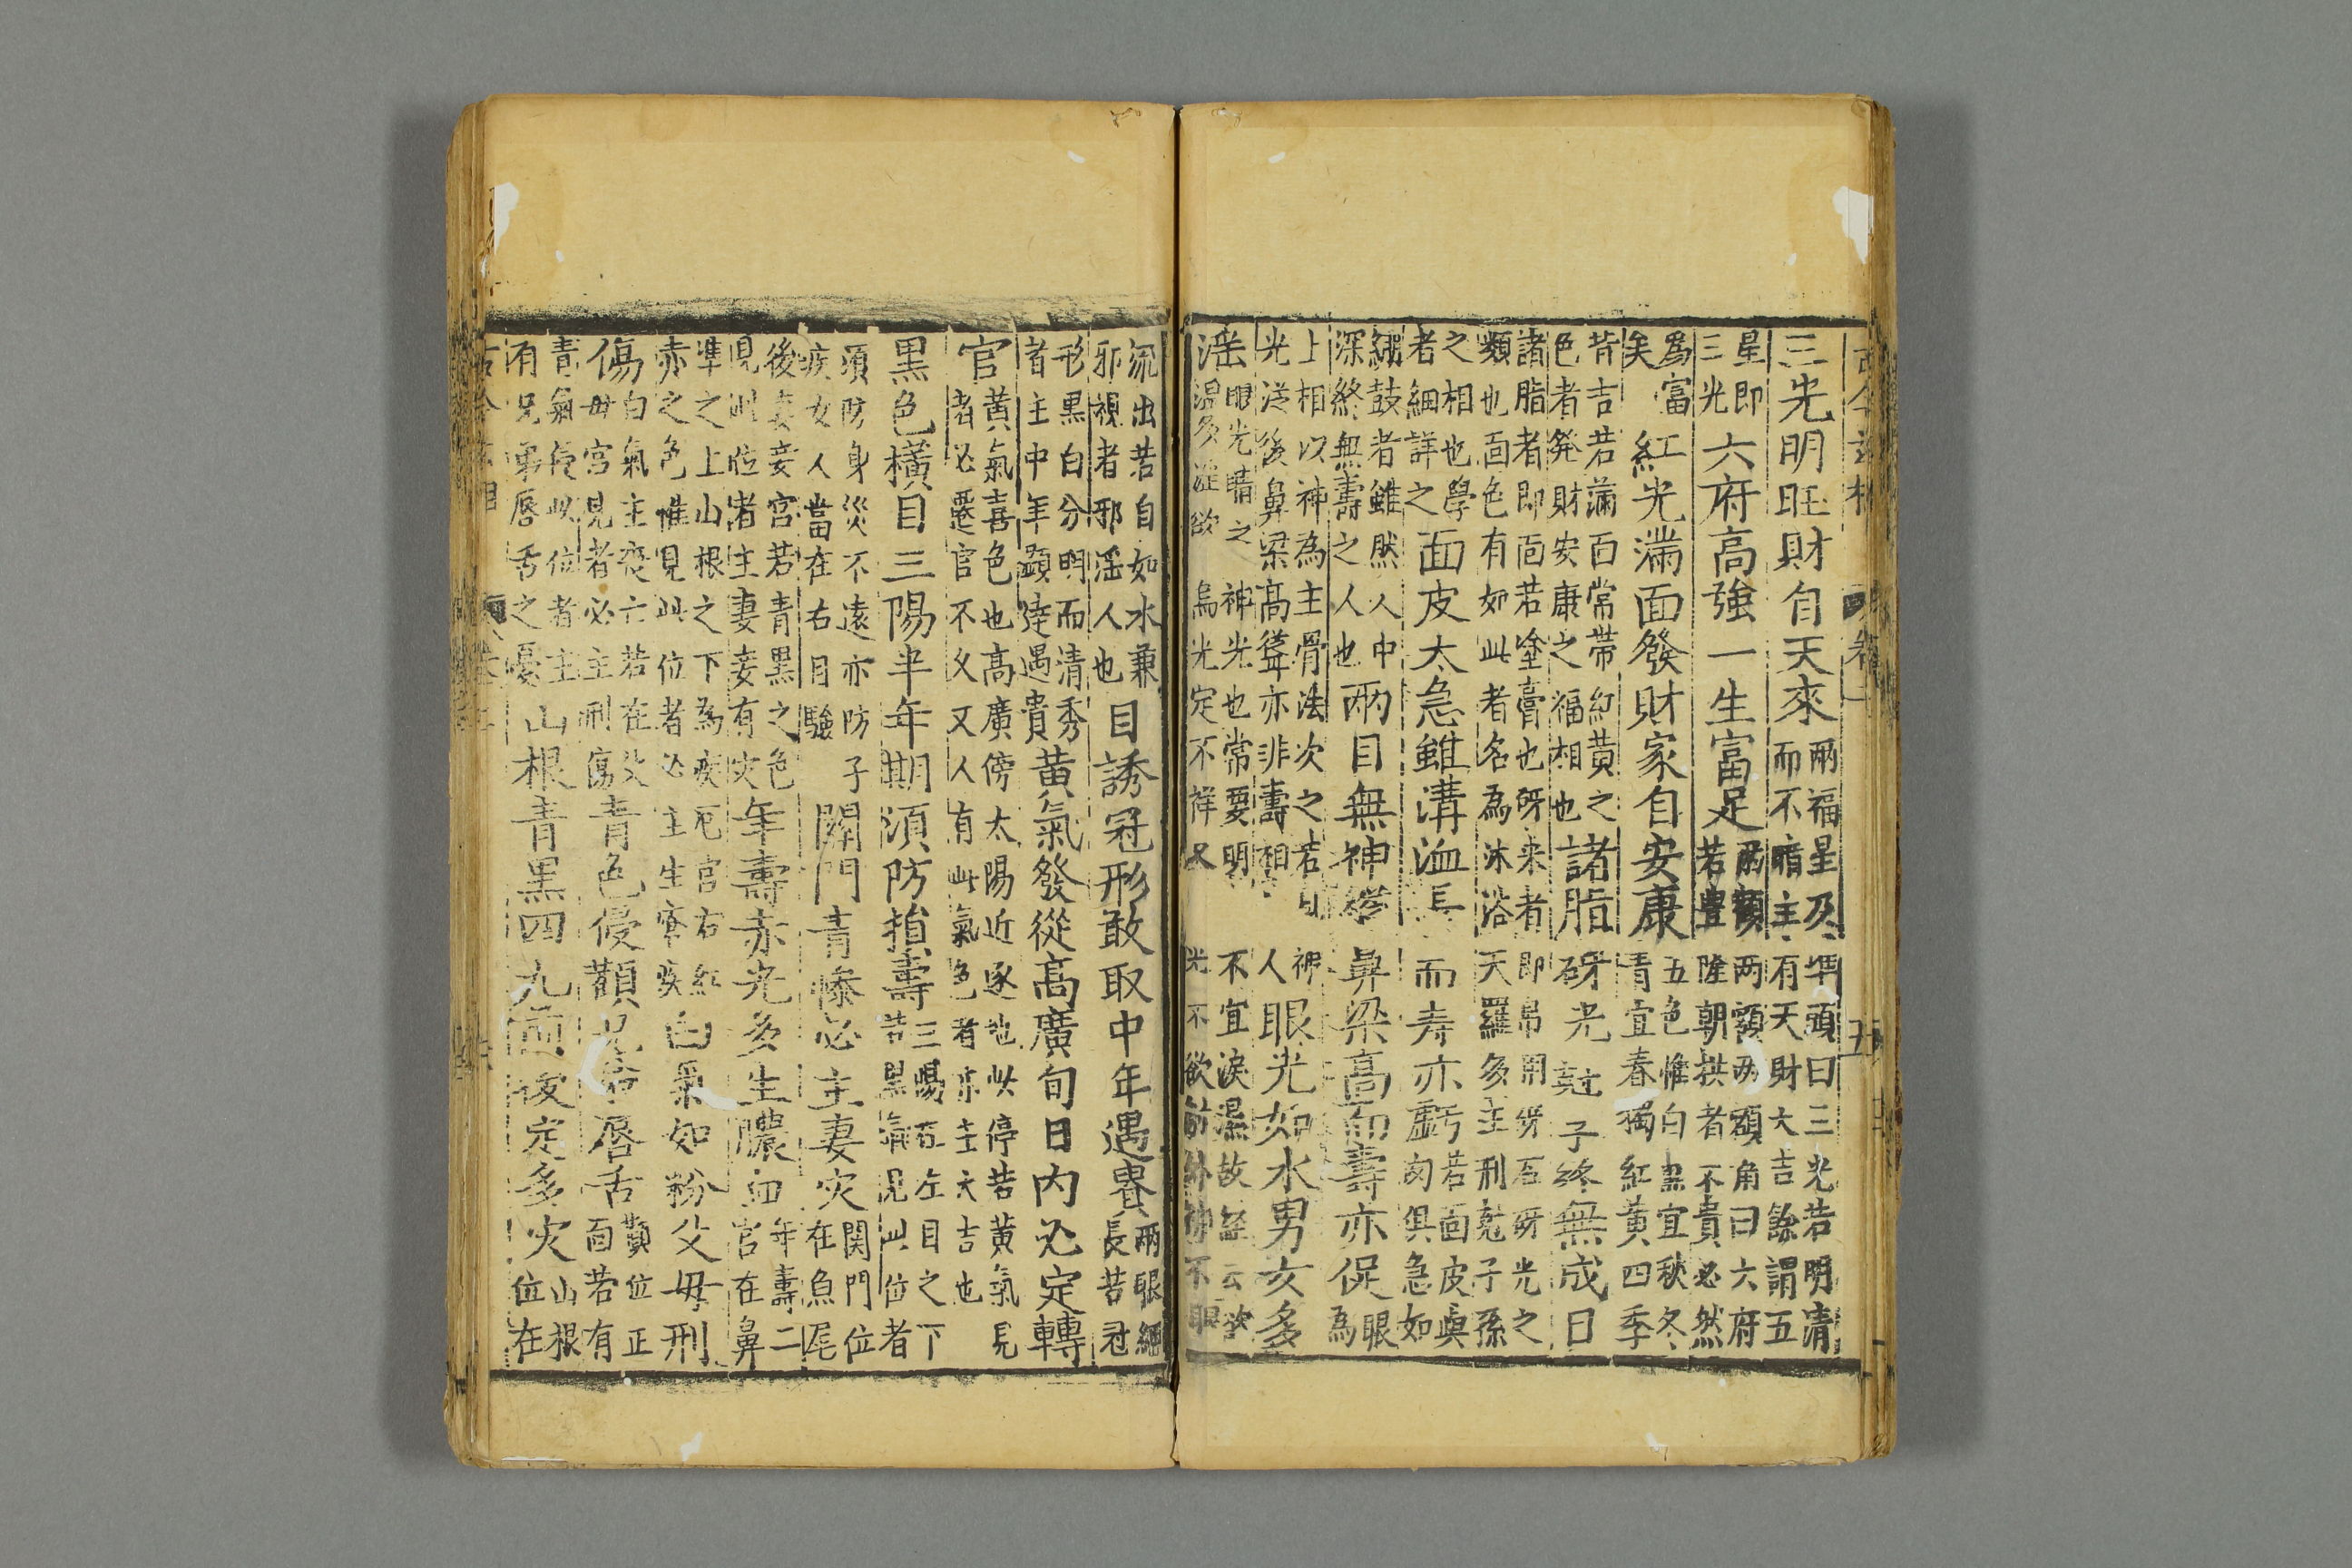 三光明旺財自天來兩福星及準頭曰三光若明清
而不暗主有天財大吉餘謂五
星即
三光六府高強一生富足兩顴兩頷兩額角曰六府
若豊隆朝拱者不貴必然
爲富
矣紅光滿面發財家自安康五色惟白黑宜秋冬
青宜春獨紅黃四季
皆吉若滿面常帶紅黃之
色者発財安康之福相也諸脂砑光尅子終無成日
諸脂者即面若塗膏也砑來者即帛用砑石砑光之
類也面色有如此者名為沐浴天羅多主刑尅子孫
之相也學
者細詳之面皮太急雖溝洫長而寿亦虧若面皮與
肉俱急如
繃鼓者雖然人中
深終無壽之人也兩目無神縱鼻梁高而壽亦促眼
為
上相以神為主骨法次之若目神
光泛後鼻梁高聳亦非壽相人眼光如水男女多
淫眼光睛之神光也常要明不宜淚濕故經云欲
濕多滛欲烏光定不祥又光不欲動外神不眼
流出若自如水兼
邪視者邪淫人也目誘冠形敢取中年遇貴兩眼細
長若冠
形黑白分明而清秀
者主中年顯達遇貴黃氣發從高廣旬日內必定轉
官黃氣喜色也高廣傍太陽近逐地此停若黃氣見
者必遷官不义又人有此氣色者亦主大吉也
黑色橫目三陽半年期須防損壽三陽在左目之下
若黑氣現此位者
須防身災不遠亦防子
疾女人當在右目驗閞門青慘必主妻灾関門位
在魚尾
後妻妾宮若青黑之色
現此位者主妻妾有灾年壽赤光多生膿血年壽二
宫在鼻
準之上山根之下為疾厄宮右紅
赤之色惟見此位者必主生瘡疾白氣如粉父母刑
傷白氣主喪亡若在父
毋宮見者必主刑傷青色侵顴兄弟唇舌顴位正
面若有
青氣侵此位者主
有兄弟唇舌之憂山根青黑四九前後定多灾山根
位在